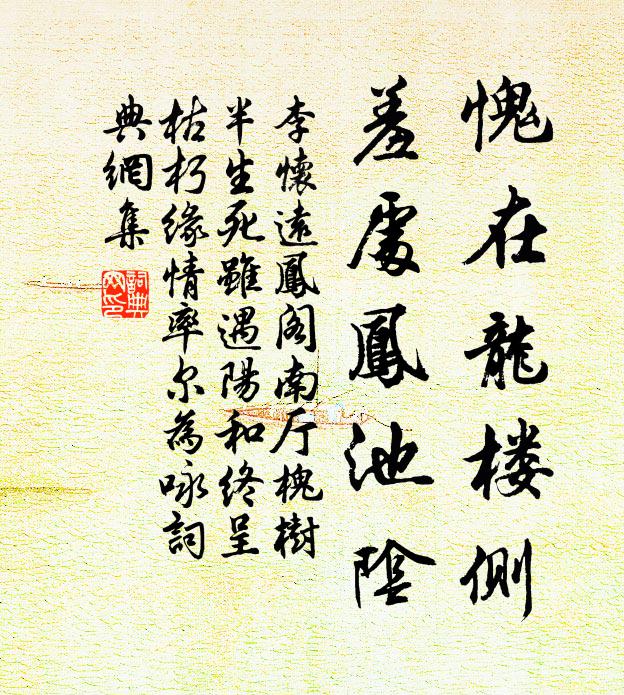 愧在龍楼側
羞處鳳池陰
李懷遠鳳阁南厅槐樹
半生死雖遇陽和終呈
枯朽緣情率尔為咏詞
典網集
詞典
网印